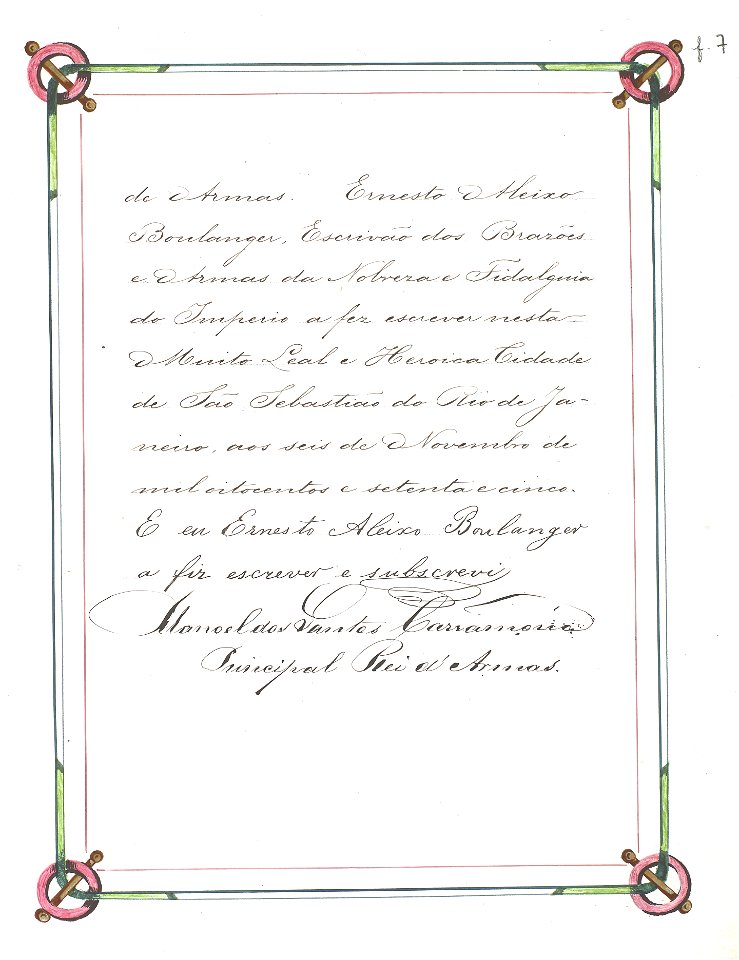 f. 7
de Armas. Ernesto Aleixo
Boulanger, Escrivão dos Brazões
e Armas da Nobreza e Fidalguia
do Imperio a fez escrever nesta
Muito Leal e Heroica Cidade
de São Sebastião do Rio de Ja-
neiro, aos seis de Novembro de
mil oitocentos e setenta e cinco.
E eu Ernesto Aleixo Boulanger
a fiz escrever e subscrevi
Manoel dos Santos Carramona
Principal Rei d'Armas.